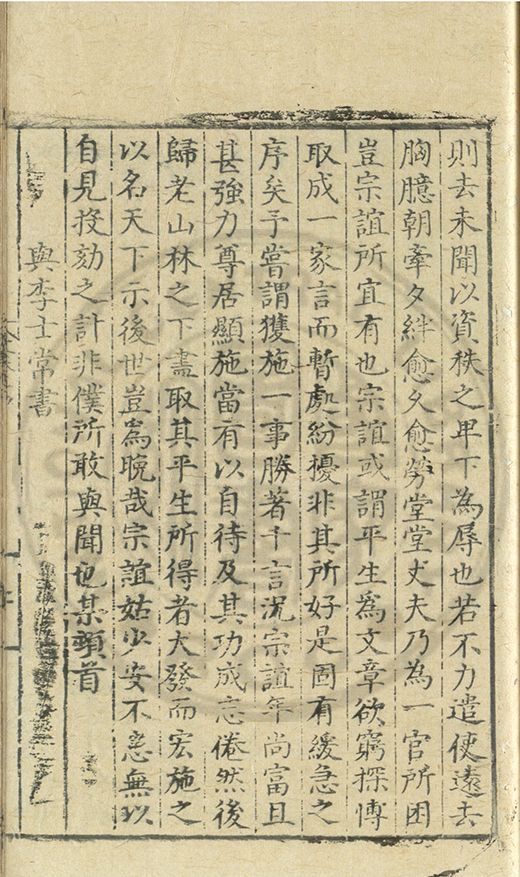 則去未聞以資秩之卑下為辱也若不力遣使遠去
胸臆朝牽夕絆愈久愈勞堂堂丈夫乃為一官所困
豈宗誼所宜有也宗誼或謂平生爲文章欲窮探博
取成一家言而暫處紛擾非其所好是固有緩急之
序矣予嘗謂獲施一事勝著千言況宗誼年尚富且
甚強力尊居顯施當有以自待及其功成志倦然後
歸老山林之下盡取其平生所得者大發而宏施之
以名天下示後世豈爲晚哉宗誼姑少安不惡無以
自見投劾之計非僕所敢與聞也某頓首
與李士常書